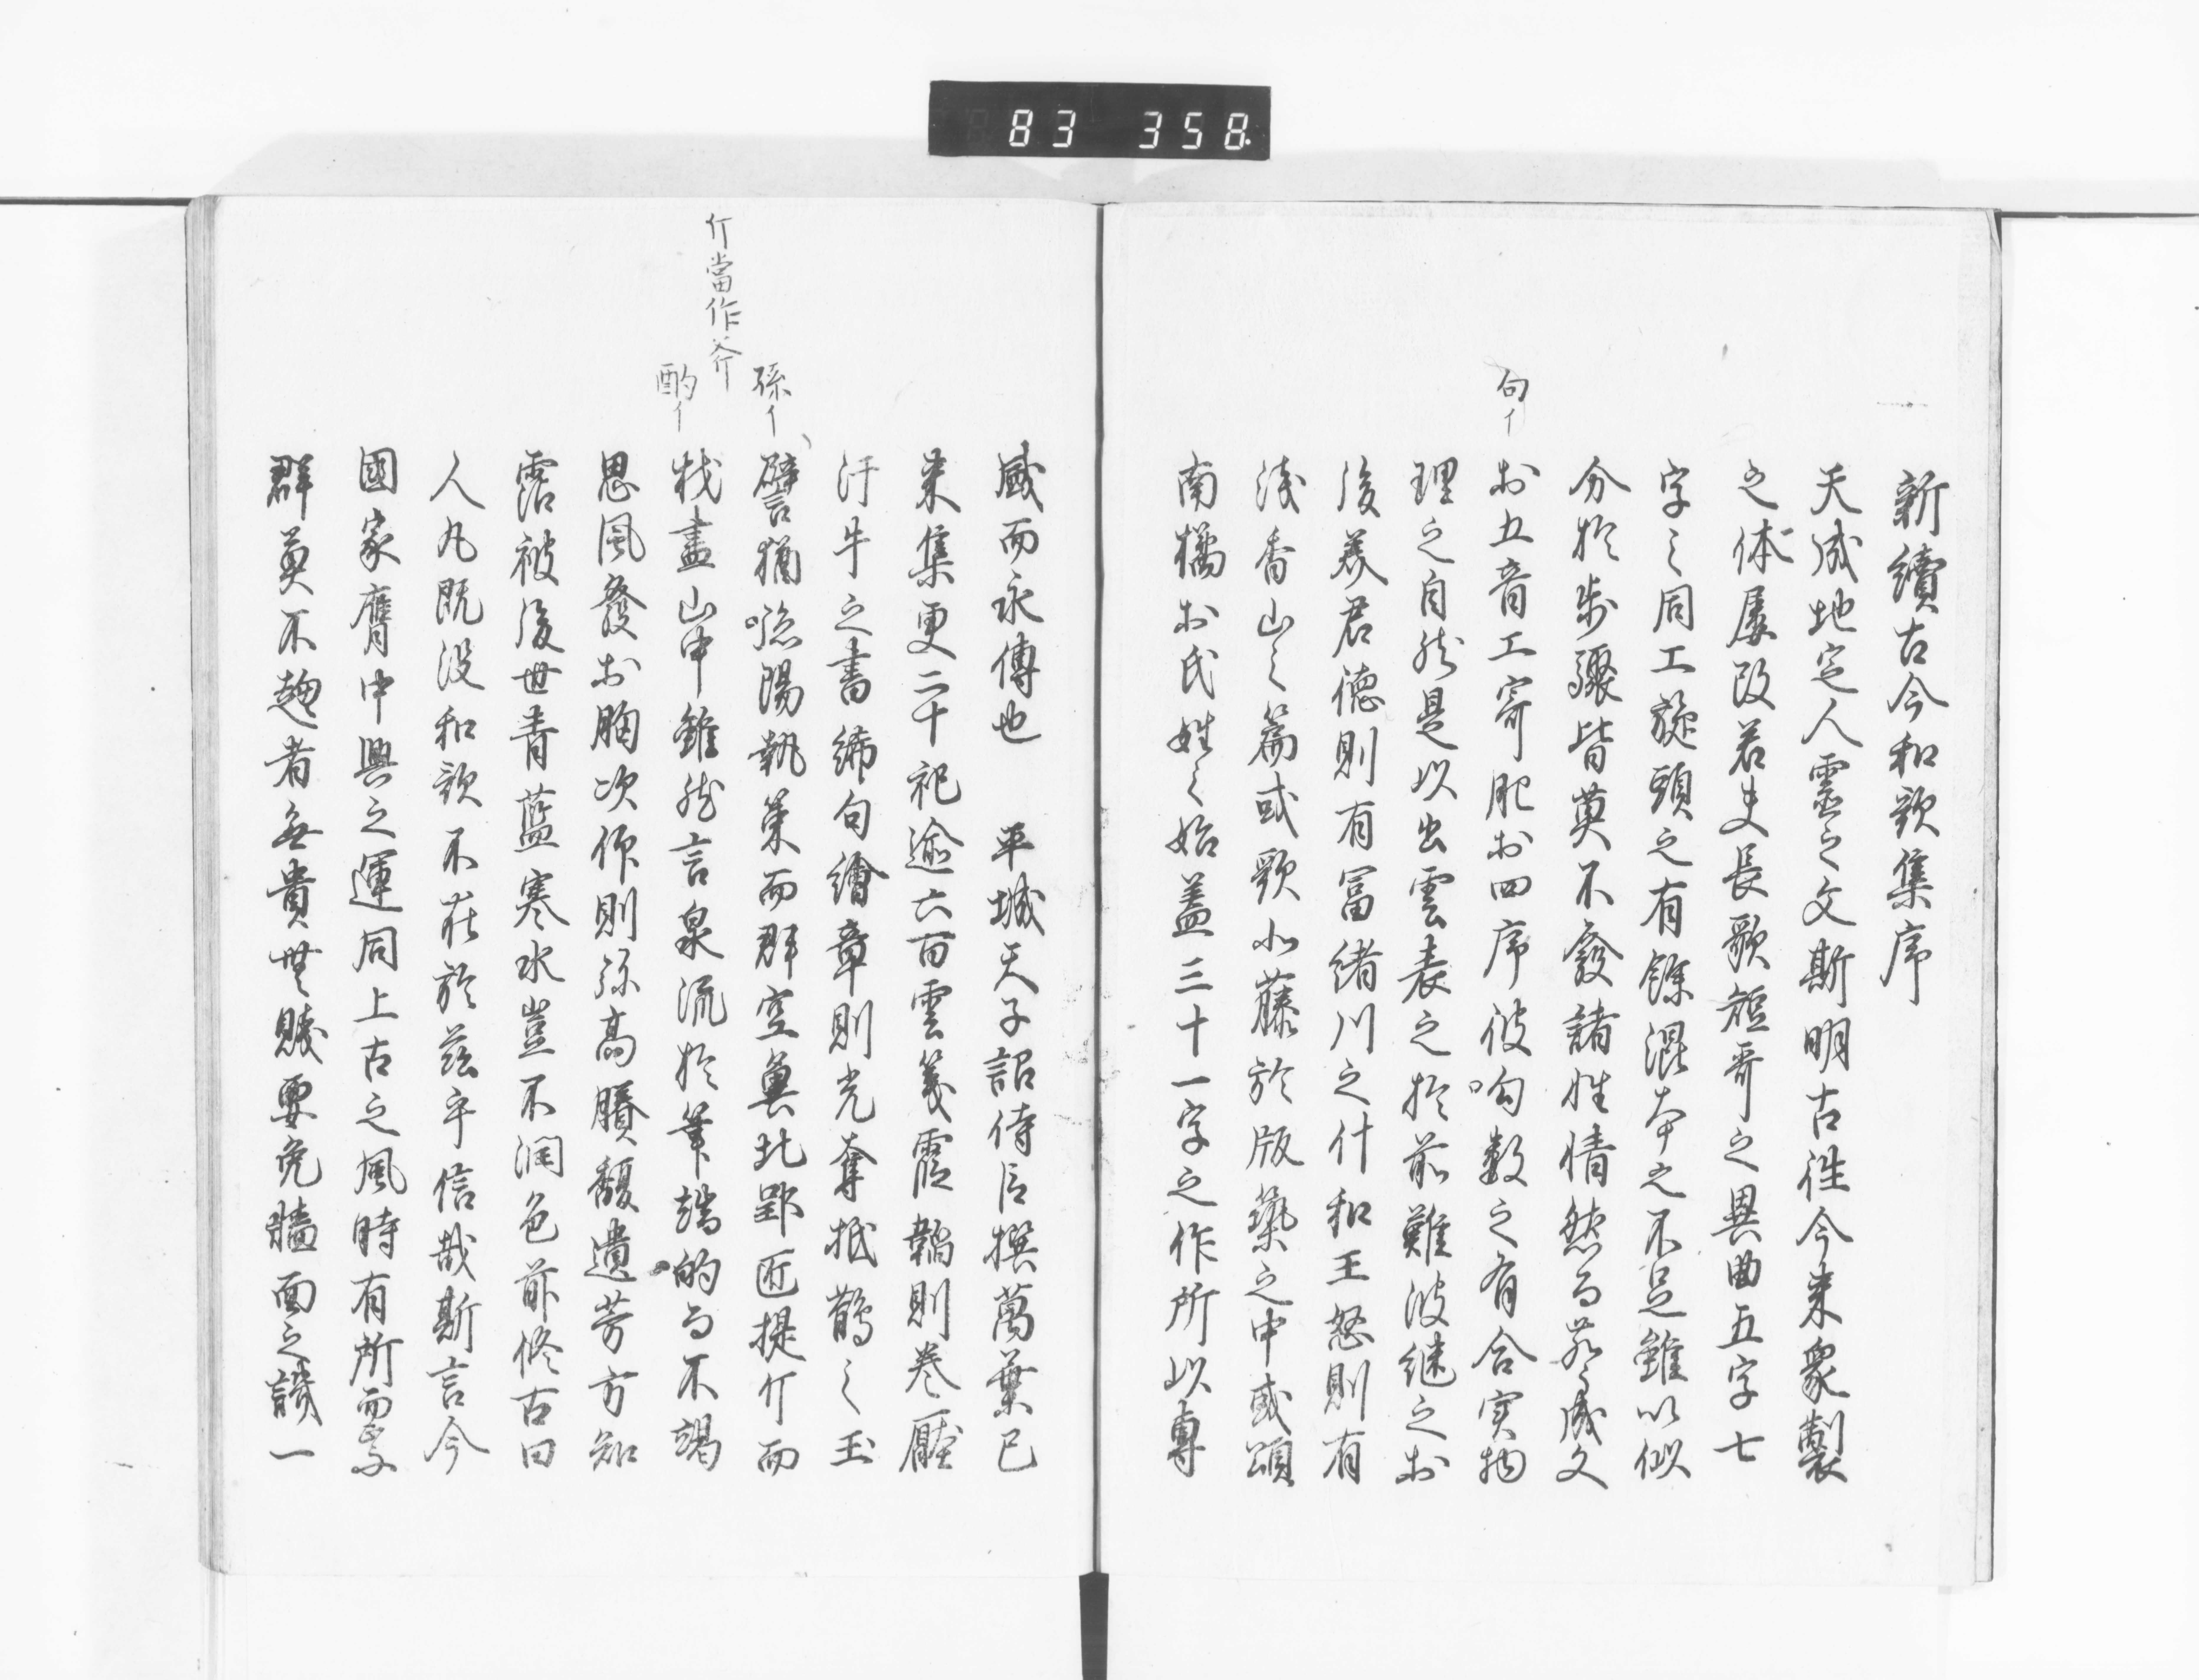 83 358
新續古今和歌集序
天成地定人靈之文斯明古往今来象製
之体屡改若夫長歌短哥之異曲五字七
字之同工旋頭之有餘混本之不足雖以似
分於歩驟皆莫不發諸性情然而茍成文
於五音工寄配於四序彼呴数之有合実物
句イ
理之自然是以出雲表之於前難波継之於
後美君徳則有冨緒川之什和王怒則有
浅香山之篇或歌小藤於版築之中或頌
南橘於氏姓之始蓋三十一字之作所以専
盛而永傳也 平城天子詔侍臣撰萬葉已
来集更二十祀逾六百雲箋霞韜則巻壓
汗牛之書絺句繪章則光奪抵鵲之玉
譬猶嗯陽執策而群空冀北郢匠提斤而
孫イ
斤當作斧
材盡山中雖然言泉流於筆端的而不竭
酌イ
思風發於胸次仰則弥高賸馥遺芳方知
霑被後世青藍寒水豈不潤色前修古曰
人丸既没和歌不在於茲乎信哉斯言今
國家膺中興之運同上古之風時有所更受
群英不趨者無貴無賎要免牆面之譏一